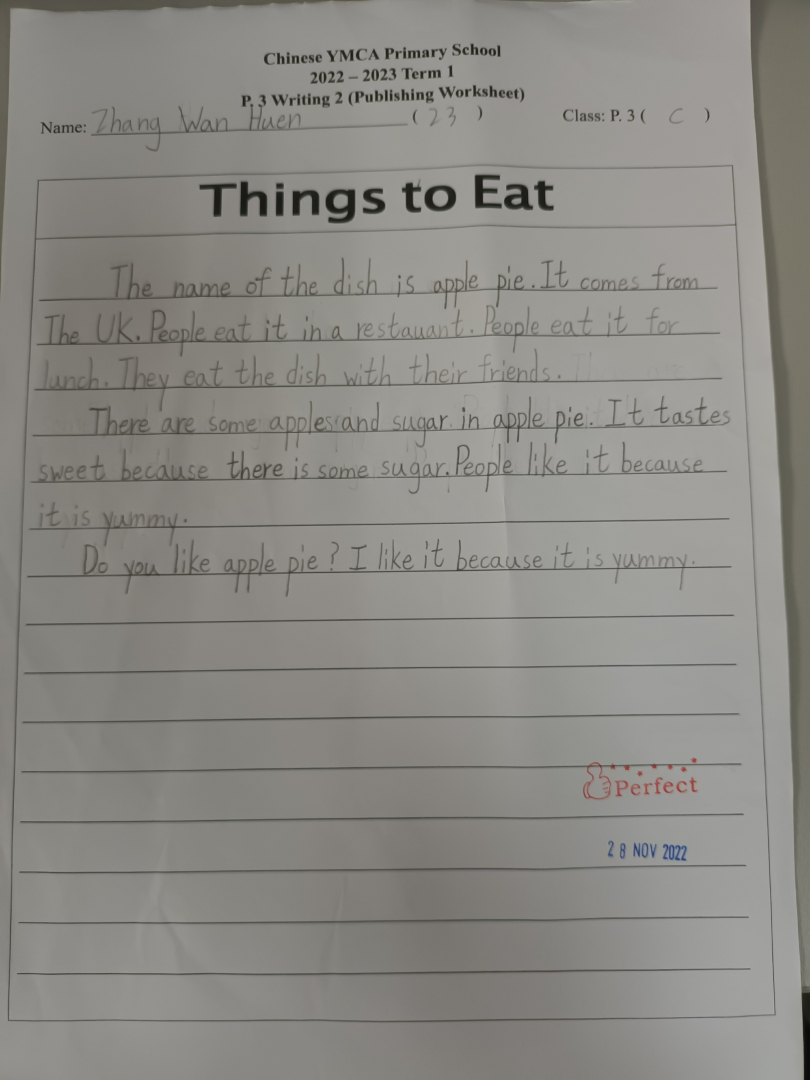 Chinese YMCA Primary School
2022 – 2023 Term 1
P. 3 Writing 2 (Publishing Worksheet)
Name: Zhang Wan Huen (23) Class: P. 3 ( C )
Things to Eat
The name of the dish is apple pie. It comes from
The UK. People eat it in a restauant. People eat it for
lunch. They eat the dish with their friends.
There are some apples and sugar in apple pie. It tastes
sweet because there is some sugar. People like it because
it is yummy.
Do you like apple pie? I like it because it is yummy.
Perfect
28 NOV 2022